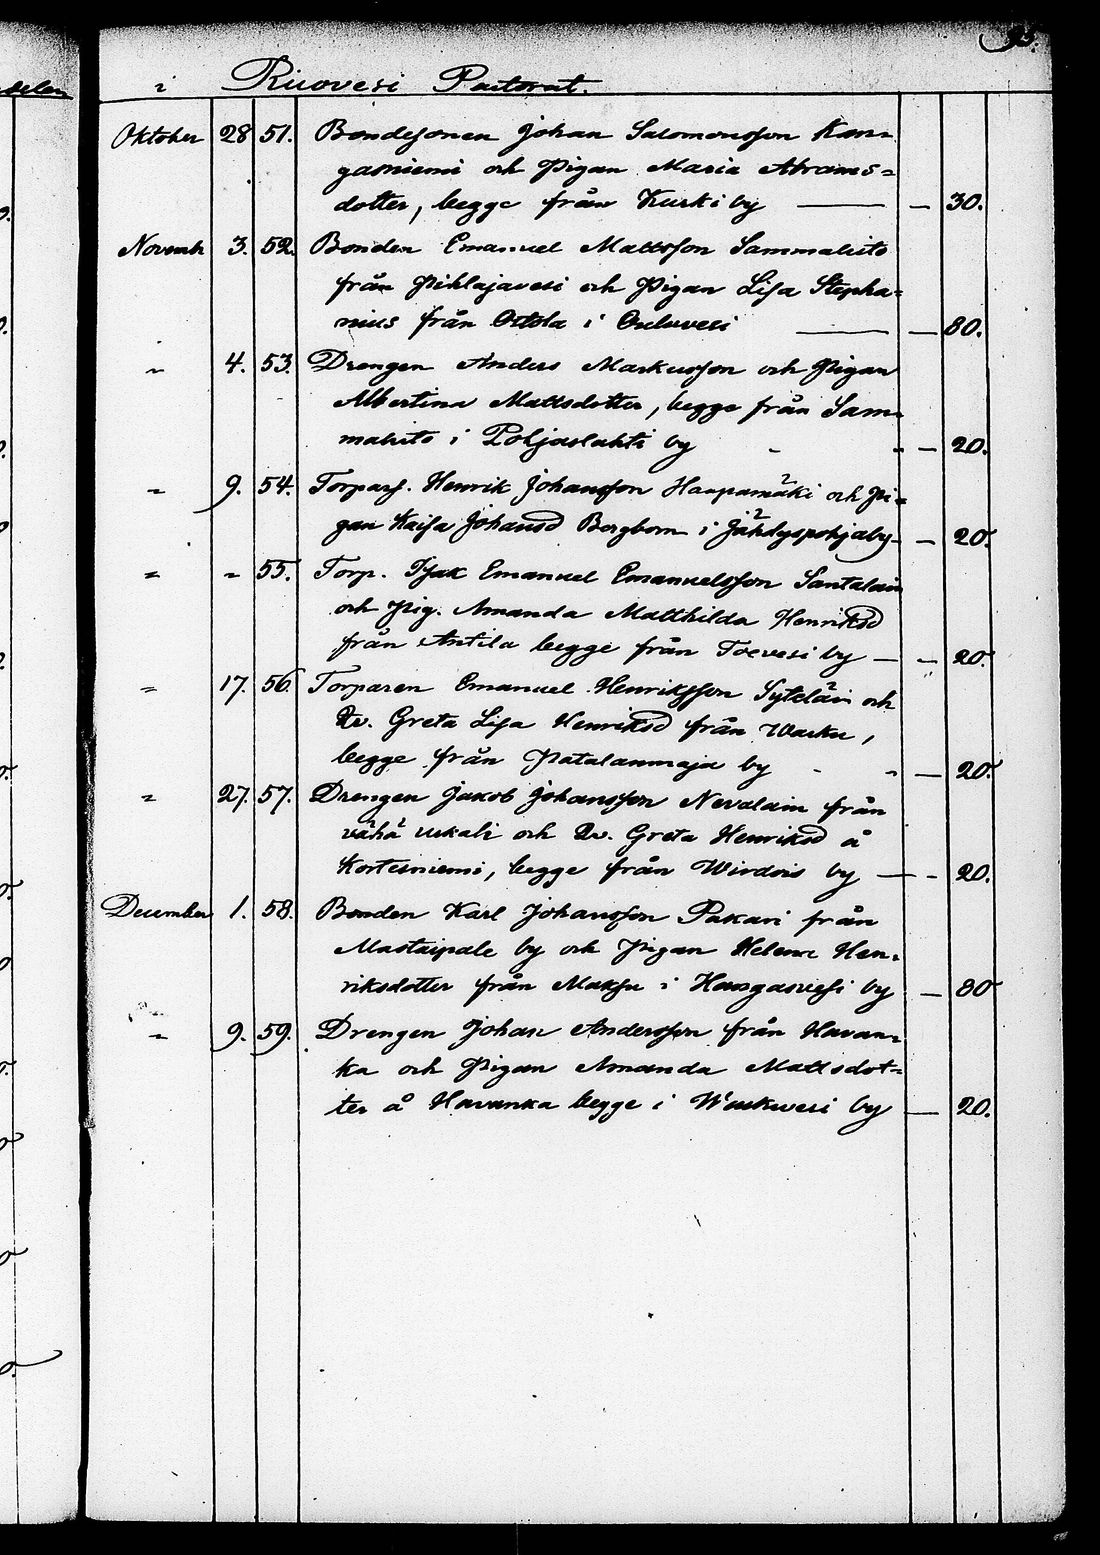 i Ruovesi Pastorat.
Oktober 28 51. Bondesonen Johan Salomonsson Kan-
gasniemi och Pigan Maria Abrams-
dotter, begge från Kurki by — — 30.
Novembr 3. 52. Bonden Emanuel Mattsson Sammalisto
från Pihlajavesi och Pigan Lisa Stepha-
nius från i — — 80.
" 4. 53. Drengen Anders Markusson och Pigan
Albertina Mattsdotter, begge från Sam-
malisto i Pohjaslahti by " " — 20.
" 9. 54. Torpars. Henrik Johansson Haapamäki och Pi-
gan Kaisa Johansd Bergbom i Jähdyspohja by — — 20.
" " 55. Torp. Isak Emanuel Emanuelsson Santalain
och Pig. Amanda Matthilda Henriksd
från Antila begge från Toevesi by — — 20.
" 17. 56. Torparen Emanuel Henriksson Syteläin och
Greta Lisa Henriksd från Warku,
begge från Patalanmaja by " " — 20.
" 27. 57. Drengen Jakob Johansson Nevalain från
vähä och Greta Henriksd å
Kortesniemi, begge från Wirdois by — — 20.
December 1. 58. Bonden Karl Johansson Pakari från
Mastaipale by och Pigan Helena Hen-
riksdotter från Maksu i Hangasvesi by — 80
" 9. 59. Drengen Johan Andersson från Havan-
ka och Pigan Amanda Mattsdot-
ter å Havanka begge i by — 20.